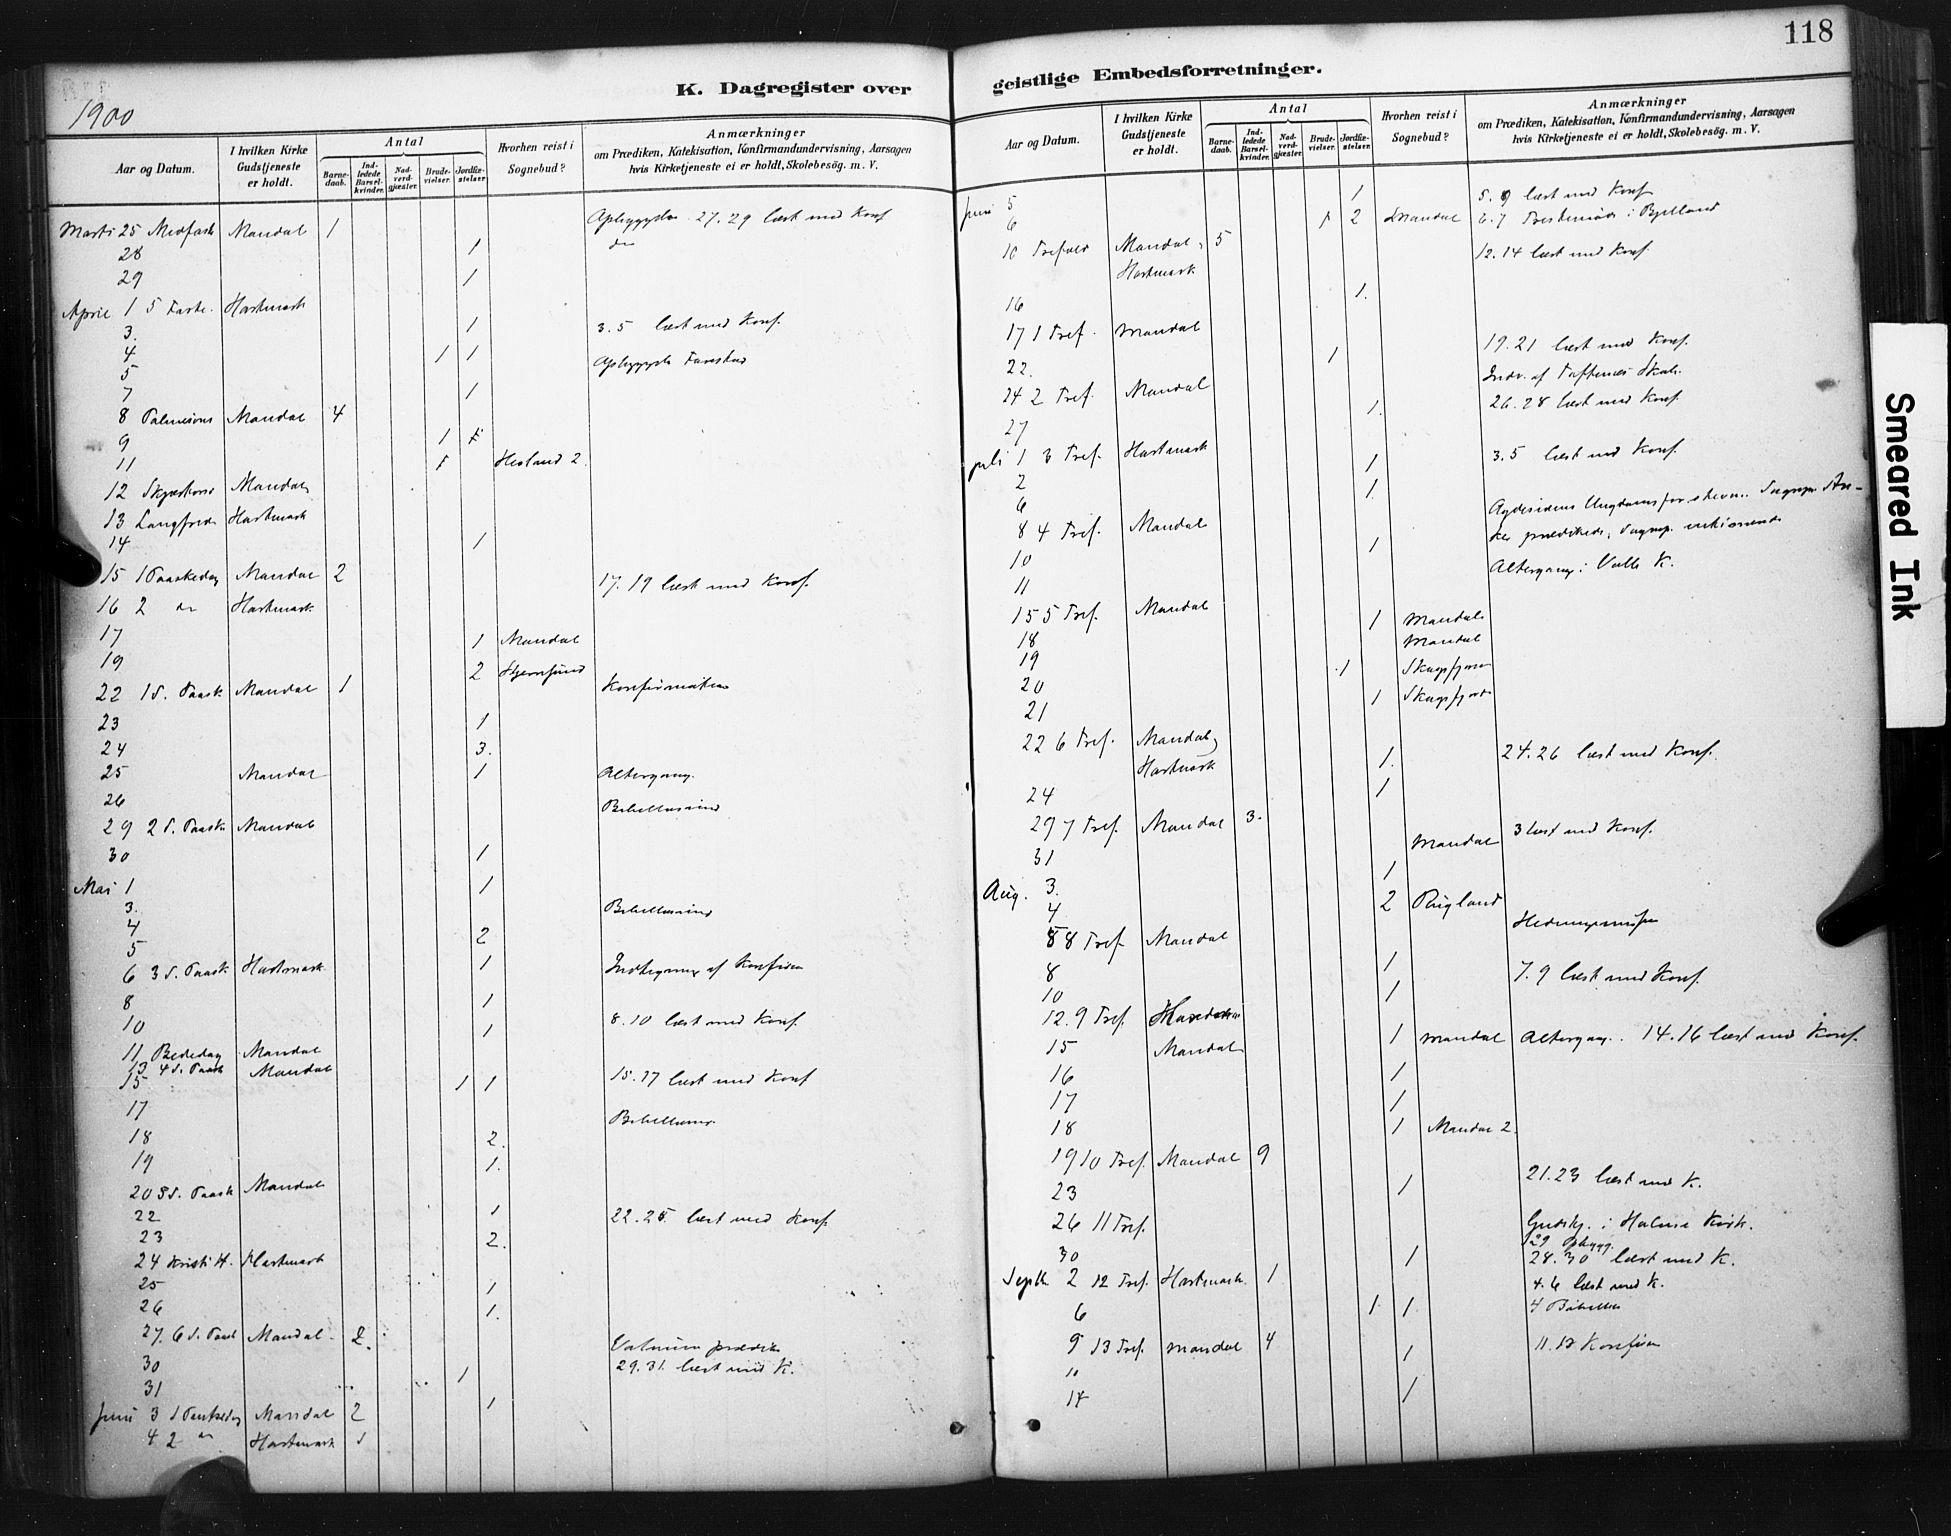 118
K. Dagregister over
geistlige Embedsforretninger.
1900
Aar og Datum.
I hvilken Kirke Gudstjeneste er holdt.
Antal
Barnedaab.
Indledede Barselkvinder.
Nadverdgjæster.
Brudevielser.
Jordfæstelser.
Hvorhen reist i Sognebud?
Anmærkninger
om Prædiken, Katekisation, Konfirmandundervisning, Aarsagen
hvis Kirketjeneste ei er holdt, Skolebesøg. m. V.
Marts 25 Midfast Mandal 1 27. 29 læst med Konf
28 1 do
29 1
April 1 5 Faste. Hartmark
3. 1 3. 5 læst med Konf.
4 1 1
5
7 1
8 Palmesøns Mandal 4
9 1
11 1 Hesland 2.
12 Skjærtorsd Mandal
13 Langfred Hartmark
14 1
15 1 Paaskedag Mandal 2 17. 19 læst med Konf.
16 2 do Hartmark
17 1 Mandal
19 2
22 1 S. Paask Mandal 1 Konfirmation
23 1
24 3.
25 Mandal 1 Altergang.
26 Bibellæsning
29 2 S. Paask Mandal
30 1
Mai 1 1
3. Bibellæsning
4 2
5
6 3 S. Paask Hartmark 1 Indtegning af Konfirm
8 1
10 1 8. 10 læst med Konf.
11 Bededag Mandal
13 4 S. Paask Mandal
15 1 1 15. 17 læst med Konf
17 Bibellæsn.
18 2.
19 1.
20 5 S. Paask Mandal
22 1 22. 25. læst med Konf.
23 2.
24 Kristi H. Hartmark
25 1
26 1.
27. 6 S. Paask Mandal 2.
30 29. 31. læst med K.
31 1
Juni 3 1 Pintsedag Mandal 2 1
4 2 do Hartmark 1
Aar og Datum.
I hvilken Kirke Gudstjeneste er holdt.
Antal
Barnedaab.
Indledede Barselkvinder.
Nadverdgjæster.
Brudevielser.
Jordfæstelser.
Hvorhen reist i Sognebud?
Anmærkninger
om Prædiken, Katekisation, Konfirmandundervisning, Aarsagen
hvis Kirketjeneste ei er holdt, Skolebesøg. m. V.
Juni 5 1 5. 9 læst med Konf
6 1 2 6. 7 Prestemøde i Bjelland
10 Trefold Mandal, 5 12. 14 læst med Konf.
Hartmark
16 1.
17 1 Tref. Mandal 19. 21 læst med Konf.
22. 1
24 2 Tref. Mandal 26. 28 læst med Konf.
27 1.
Juli 1 3 Tref. Hartmark 3. 5 læst med Konf.
2 1
6 1.
8 4 Tref. Mandal
10 1 Altergang i Valle K.
11
15 5 Tref. Mandal
18 1 Mandal
19 Mandal
20 1 Skogsfjord
21 1 Skogsfjord
22 6 Tref. Mandal, 24. 26 læst med Konf.
Hartmark 1.
24 1
29 7 Tref. Mandal 3. 3 læst med Konf.
31 Mandal
Aug. 3. 1
4 2 Rugland
5 8 Tref. Mandal
8 1 7. 9 læst med Konf.
10 1
12. 9 Tref.
15 Mandal 1 Mandal Altergang. 14. 16 læst med Konf.
16 1
17 1
18 1 Mandal 2.
19 10 Tref. Mandal 9 21. 23 læst med K.
23 1
26 11 Tref. Gudstj. i Holme Kirk.
30 1 28. 30 læst med K.
Septb. 2 12 Tref. Hartmark. 1 4. 6 læst med K.
6 1 1
9 13 Tref. Mandal 4 1
11
14 1
Smeared Ink